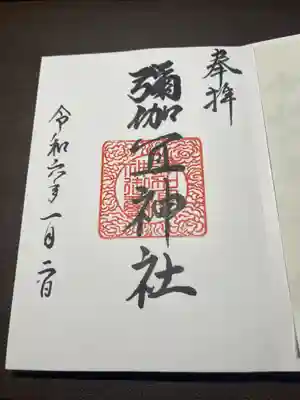 奉拝
彌伽宜神社
令和六年一月二日